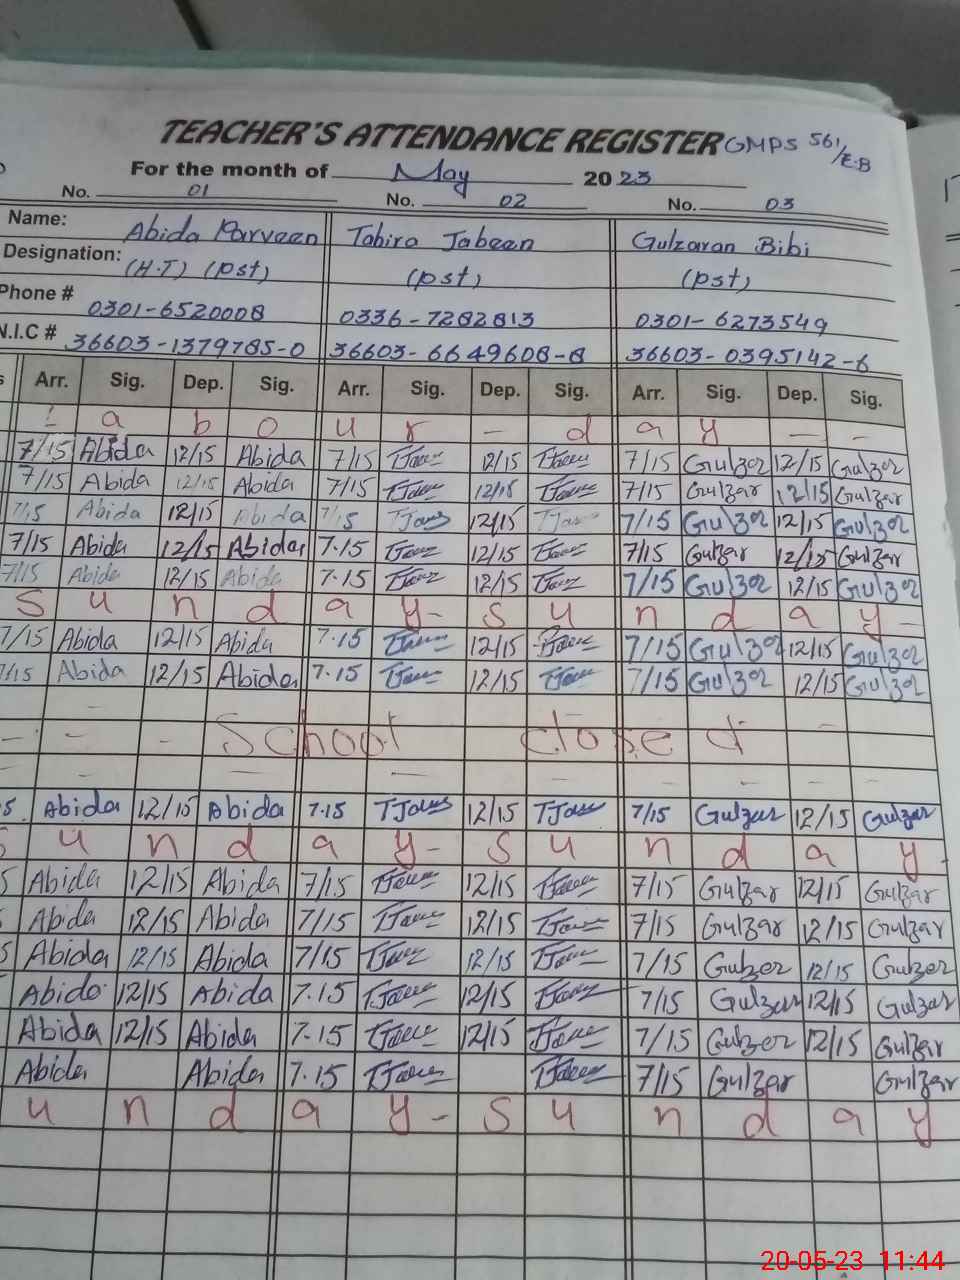 TEACHER'S ATTENDANCE REGISTER GMPS 561/E.B
For the month of May 2023
No. 01 No. 02 No. 03
Name: Abida Parveen Tahira Jabeen Gulzaran Bibi
Designation: (H.T) (pst) (pst) (pst)
Phone # 0301-6520008 0336-7282813 0301-6273549
N.I.C # 36603-1379785-0 36603-6649608-8 36603-0395142-6
Arr. Sig. Dep. Sig. Arr. Sig. Dep. Sig. Arr. Sig. Dep. Sig.
L a b o u r - d a y - -
7/15 Abida 12/15 Abida 7/15 TJaus 12/15 TJaus 7/15 Gulzar 12/15 Gulzar
7/15 Abida 12/15 Abida 7/15 TJaus 12/15 TJaus 7/15 Gulzar 12/15 Gulzar
7/15 Abida 12/15 Abida 7/15 TJaus 12/15 TJaus 7/15 Gulzar 12/15 Gulzar
7/15 Abida 12/15 Abida 7.15 TJaus 12/15 TJaus 7/15 Gulzar 12/15 Gulzar
7/15 Abida 12/15 Abida 7.15 TJaus 12/15 TJaus 7/15 Gulzar 12/15 Gulzar
S u n d a y - S u n d a y -
7/15 Abida 12/15 Abida 7.15 TJaus 12/15 TJaus 7/15 Gulzar 12/15 Gulzar
7/15 Abida 12/15 Abida 7.15 TJaus 12/15 TJaus 7/15 Gulzar 12/15 Gulzar
School closed
5 Abida 12/15 Abida 7.15 TJaus 12/15 TJaus 7/15 Gulzar 12/15 Gulzar
S u n d a y - S u n d a y -
5 Abida 12/15 Abida 7/15 TJaus 12/15 TJaus 7/15 Gulzar 12/15 Gulzar
5 Abida 12/15 Abida 7/15 TJaus 12/15 TJaus 7/15 Gulzar 12/15 Gulzar
5 Abida 12/15 Abida 7/15 TJaus 12/15 TJaus 7/15 Gulzar 12/15 Gulzar
Abida 12/15 Abida 7.15 TJaus 12/15 TJaus 7/15 Gulzar 12/15 Gulzar
Abida 12/15 Abida 7.15 TJaus 12/15 TJaus 7/15 Gulzar 12/15 Gulzar
Abida Abida 7.15 TJaus TJaus 7/15 Gulzar Gulzar
u n d a y - S u n d a y
20-05-23 11:44